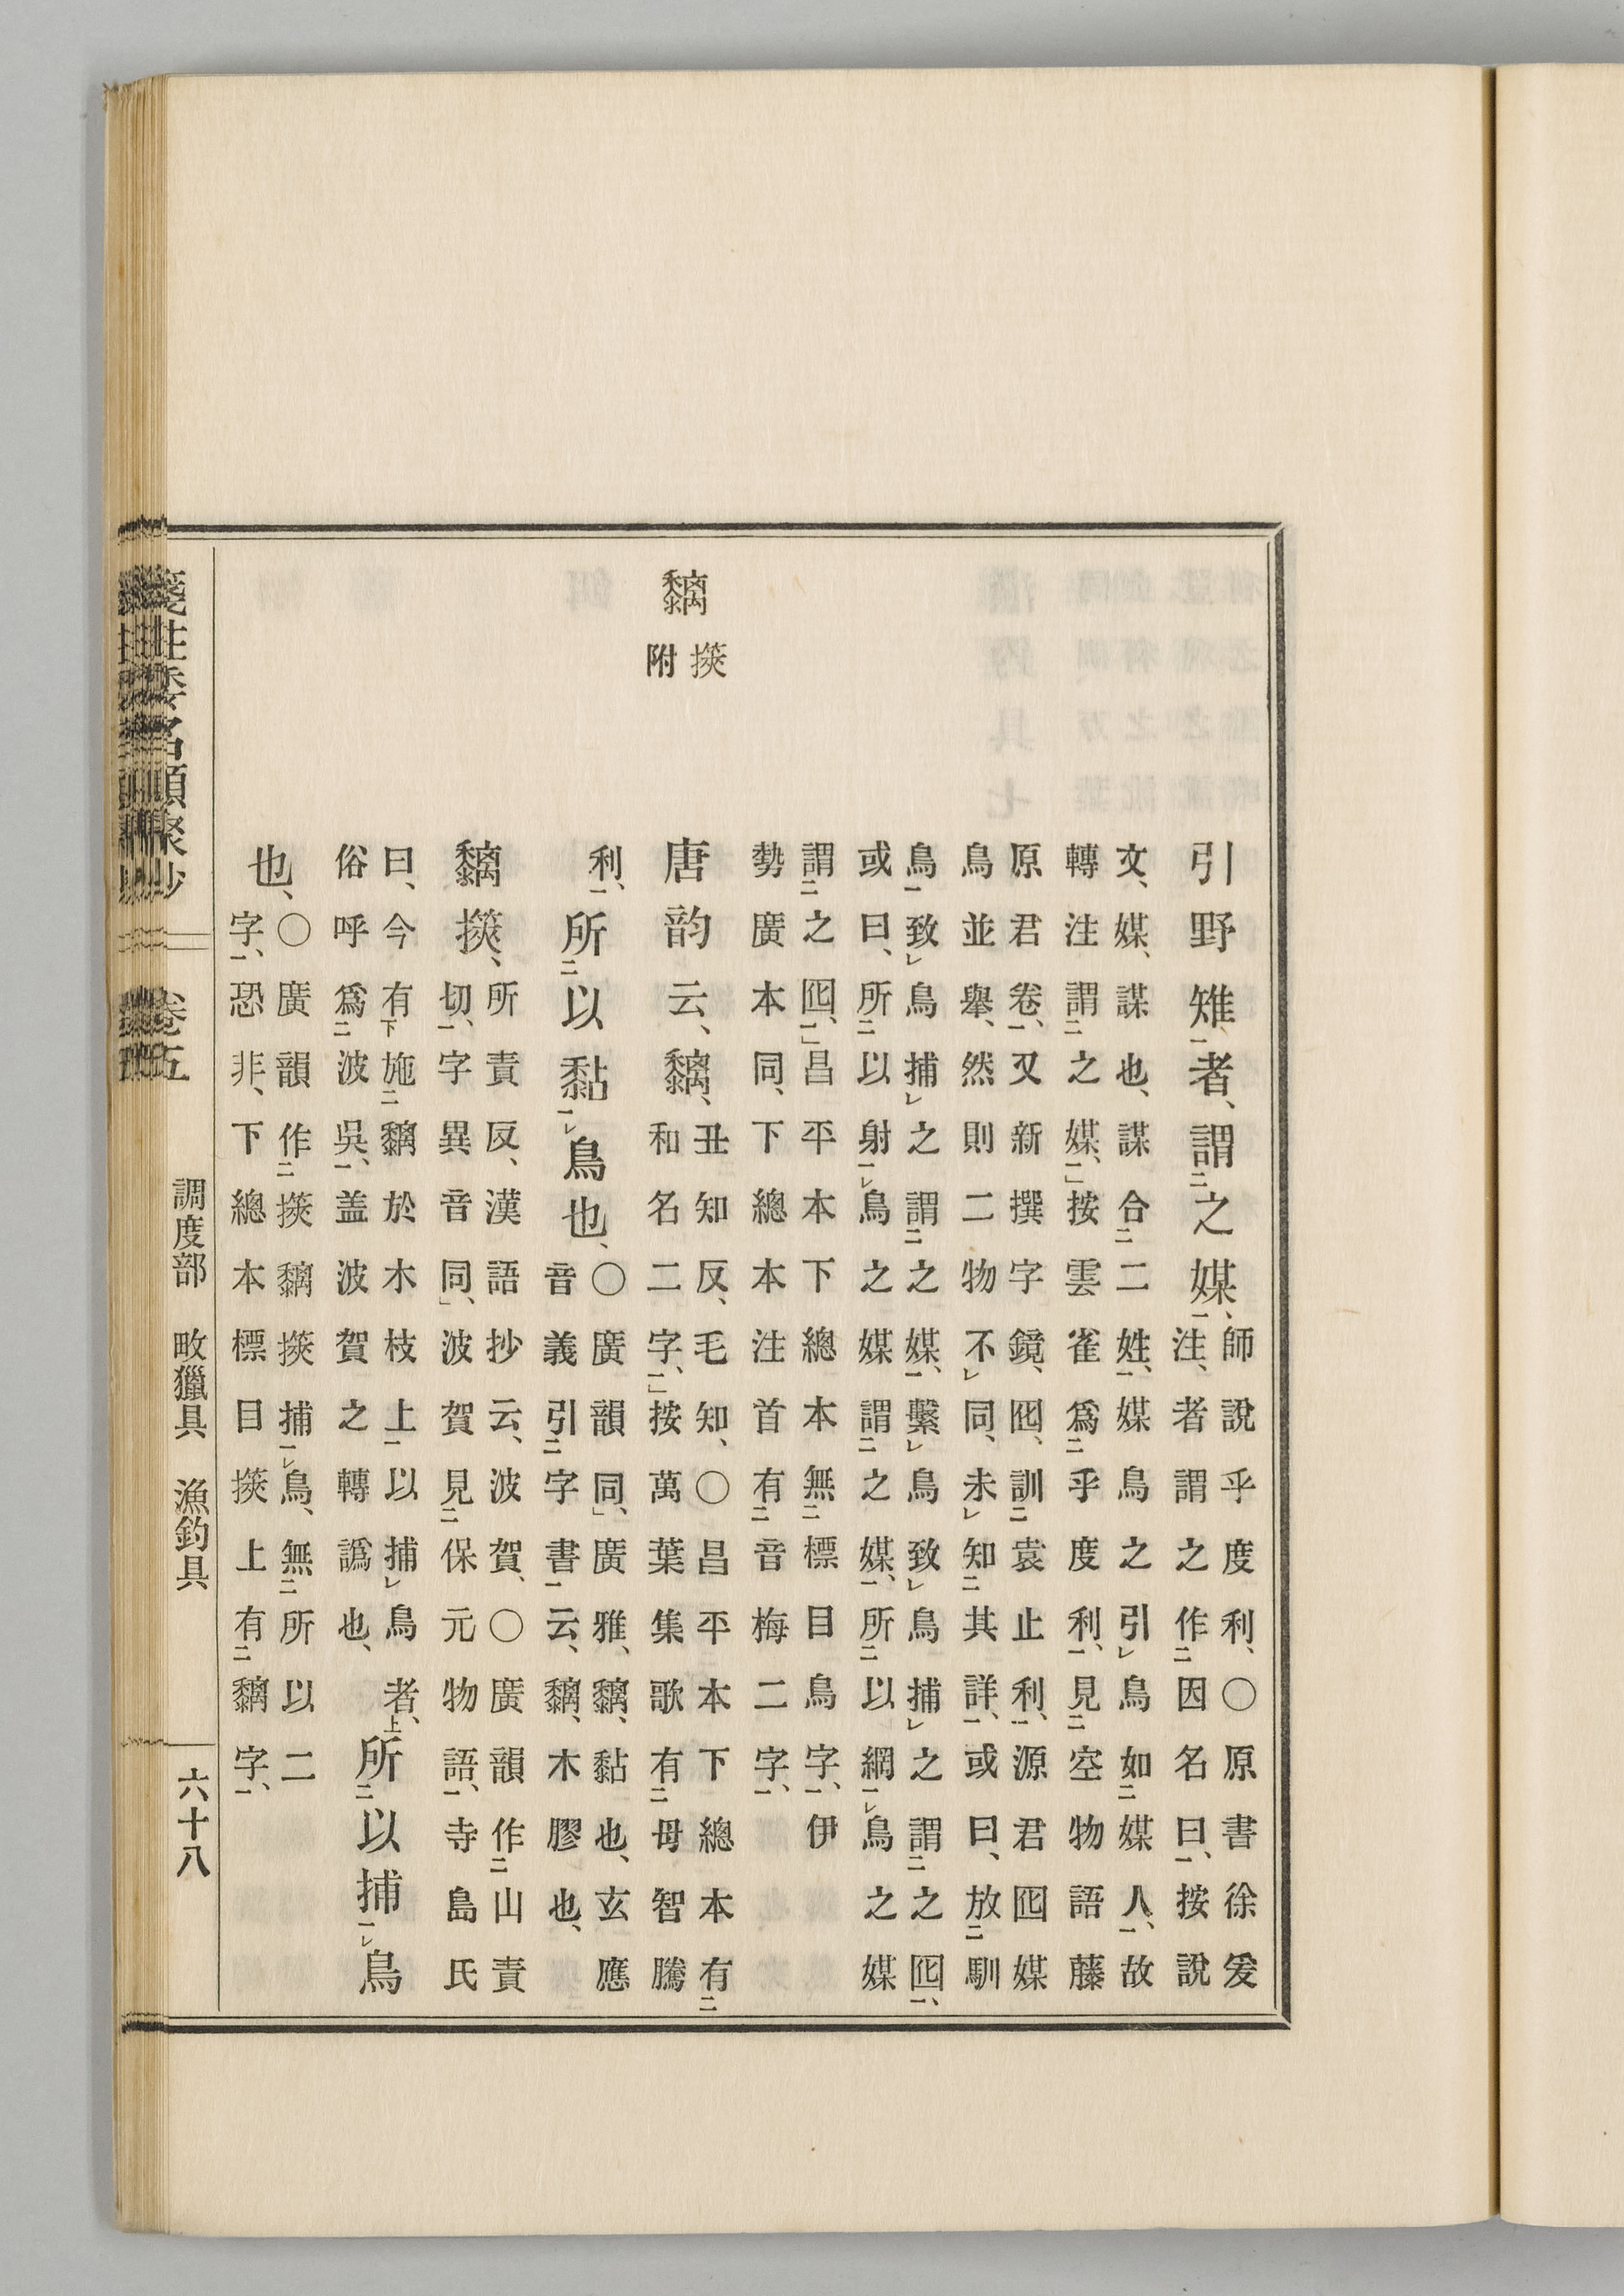 引野雉者、謂之媒、師說乎度利、〇原書徐爰
注、者謂之作因名曰、按說
文、媒、謀也、謀合二姓、媒鳥之引鳥如媒人、故
轉注謂之媒、」按雲雀爲乎度利、見空物語藤
原君卷、又新撰字鏡、囮、訓袁止利、源君囮媒
鳥並舉、然則二物不同、未知其詳、或曰、放馴
鳥致鳥捕之謂之媒、繫鳥致鳥捕之謂之囮、
或曰、所以射鳥之媒謂之媒、所以網鳥之媒
謂之囮、」昌平本下總本無標目鳥字、伊
勢廣本同、下總本注首有音梅二字、
黐 擌附
唐韵云、黐、丑知反、毛知、〇昌平本下總本有
和名二字、」按萬葉集歌有母智騰
利、
所以黏鳥也、〇廣韻同、」廣雅、黐、黏也、玄應
音義引字書云、黐、木膠也、
黐擌、所責反、漢語抄云、波賀、〇廣韻作山責
切、字異音同、」波賀見保元物語、寺島氏
曰、今有施黐於木枝上以捕鳥者、
俗呼爲波吳、盖波賀之轉譌也、
所以捕鳥
也、〇廣韻作擌黐擌捕鳥、無所以二
字、恐非、下總本標目擌上有黐字、
箋注倭名類聚抄 卷五 調度部 畋獵具 漁釣具 六十八